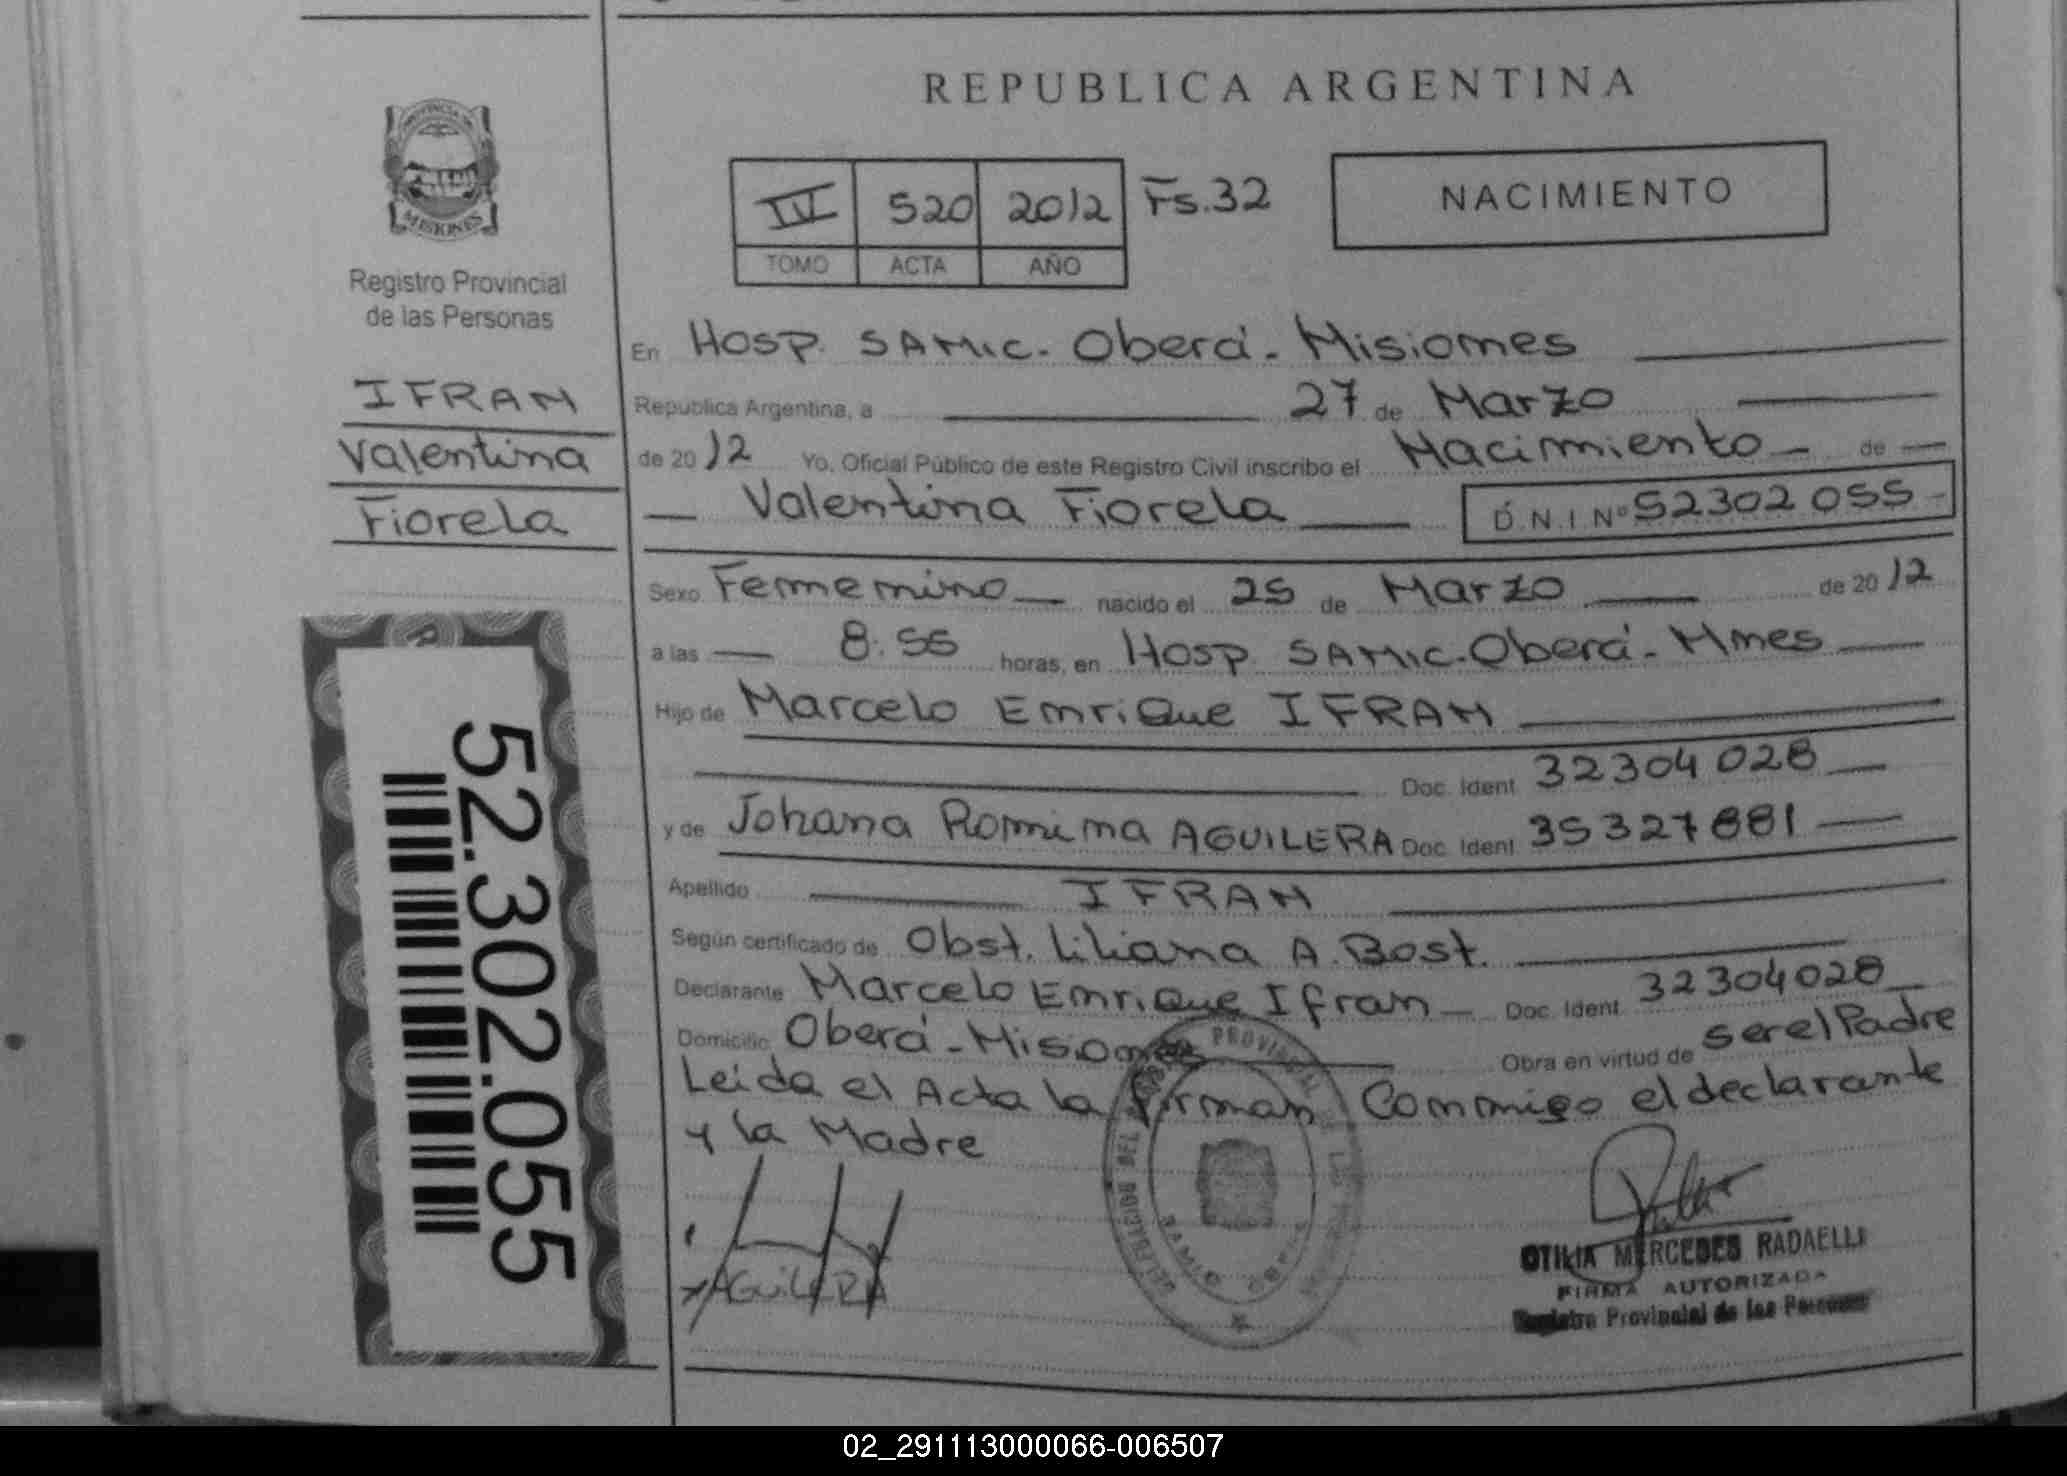 REPUBLICA ARGENTINA
PROVINCIA DE
MISIONES
Registro Provincial
de las Personas
IV 520 2012 Fs.32
TOMO ACTA AÑO
NACIMIENTO
IFRAN
Valentina
Fiorela
52.302.055
En Hosp. SAMIC. Oberá. Misiones
Republica Argentina, a 27 de Marzo
de 2012 Yo, Oficial Público de este Registro Civil inscribo el Nacimiento de
Valentina Fiorela D.N.I.Nº 52302055
Sexo Femenino nacido el 25 de Marzo de 2012
a las 8:55 horas, en Hosp. SAMIC. Oberá. Mnes
Hijo de Marcelo Enrique IFRAN
Doc. Ident 32304028
y de Johana Romina AGUILERA Doc. Ident 35327881
Apellido IFRAN
Según certificado de Obst. Liliana A. Bost.
Declarante Marcelo Enrique Ifran Doc. Ident 32304028
Domicilio Oberá - Misiones Obra en virtud de ser el Padre
Leida el Acta la firman Conmigo el declarante
y la Madre
AGUILERA
PROVINCIAL DE LAS
OTILIA MERCEDES RADAELLI
FIRMA AUTORIZADA
Registro Provincial de las Personas
02_291113000066-006507